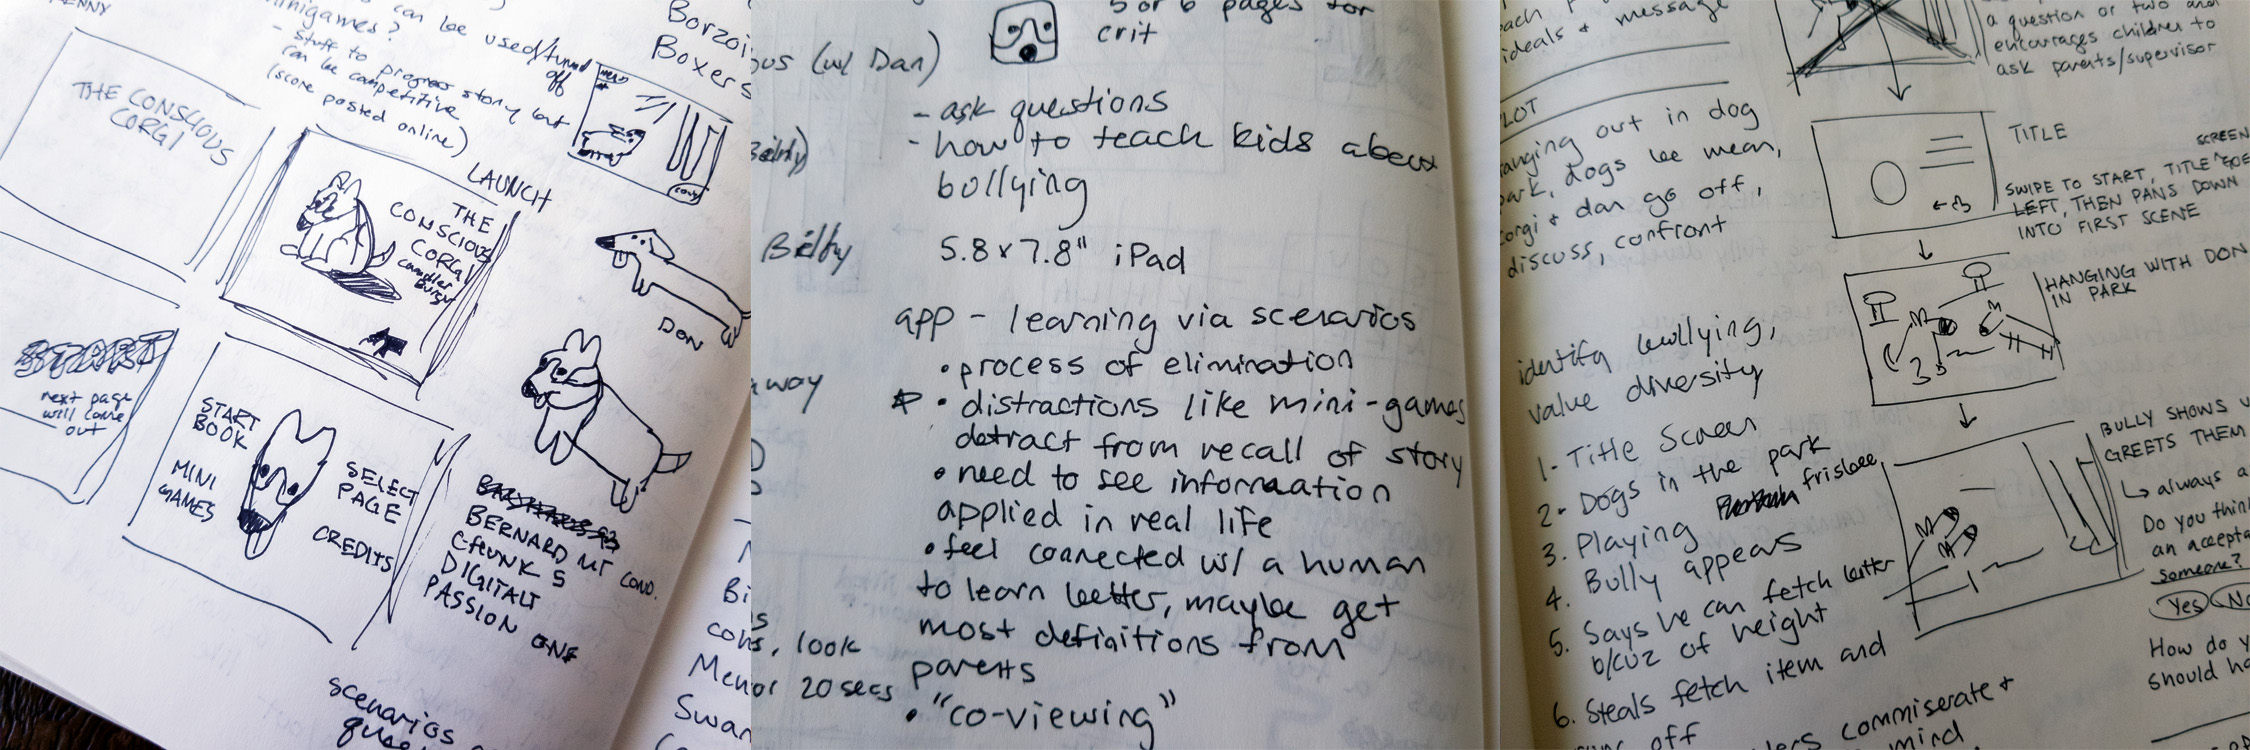 can be used/turned
off
minigames?
- stuff to progress story but
can be competitive
(score posted online)
Boxers
THE CONSCIOUS
CORGI
LAUNCH
THE
CONSCIOUS
CORGI
DON
START
next page
will come
out
START
BOOK
MINI
GAMES
SELECT
PAGE
CREDITS
BERNARD MT COND.
CHUNK 5
DIGITALT
PASSION ONE
scenarios
5 or 6 pages for
crit
(w/ Dan)
Bilby
away
look
20 secs
- ask questions
- how to teach kids about
bullying
5.8 x 7.8" iPad
app - learning via scenarios
• process of elimination
• distractions like mini-games
detract from recall of story
• need to see information
applied in real life
• feel connected w/ a human
to learn better, maybe get
most definitions from
parents
• "co-viewing"
ideals + message
hanging out in dog
park, dogs be mean,
corgi + dan go off,
discuss, confront
identify bullying,
value diversity
1- Title Screen
2- Dogs in the park
3. Playing frisbee
4. Bully appears
5. Says he can fetch better
b/cuz of height
6. Steals fetch item and
off
commiserate +
mind
a question or two and
encourages children to
ask parents/supervisor
TITLE
SCREEN
SWIPE TO START, TITLE GOES
LEFT, THEN PANS DOWN
INTO FIRST SCENE
HANGING WITH DON
IN PARK
BULLY SHOWS
GREETS THEM
always
Do you think
an
someone?
Yes No
How do
should